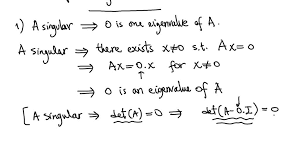 1) A singular ⟹ 0 is one eigenvalue of A.
A singular ⟹ there exists x≠0 s.t. Ax=0
⟹ Ax=0.x for x≠0
↑
⟹ 0 is an eigenvalue of A
[A singular ⟹ det(A)=0 ⟹ det(A-0.I)=0